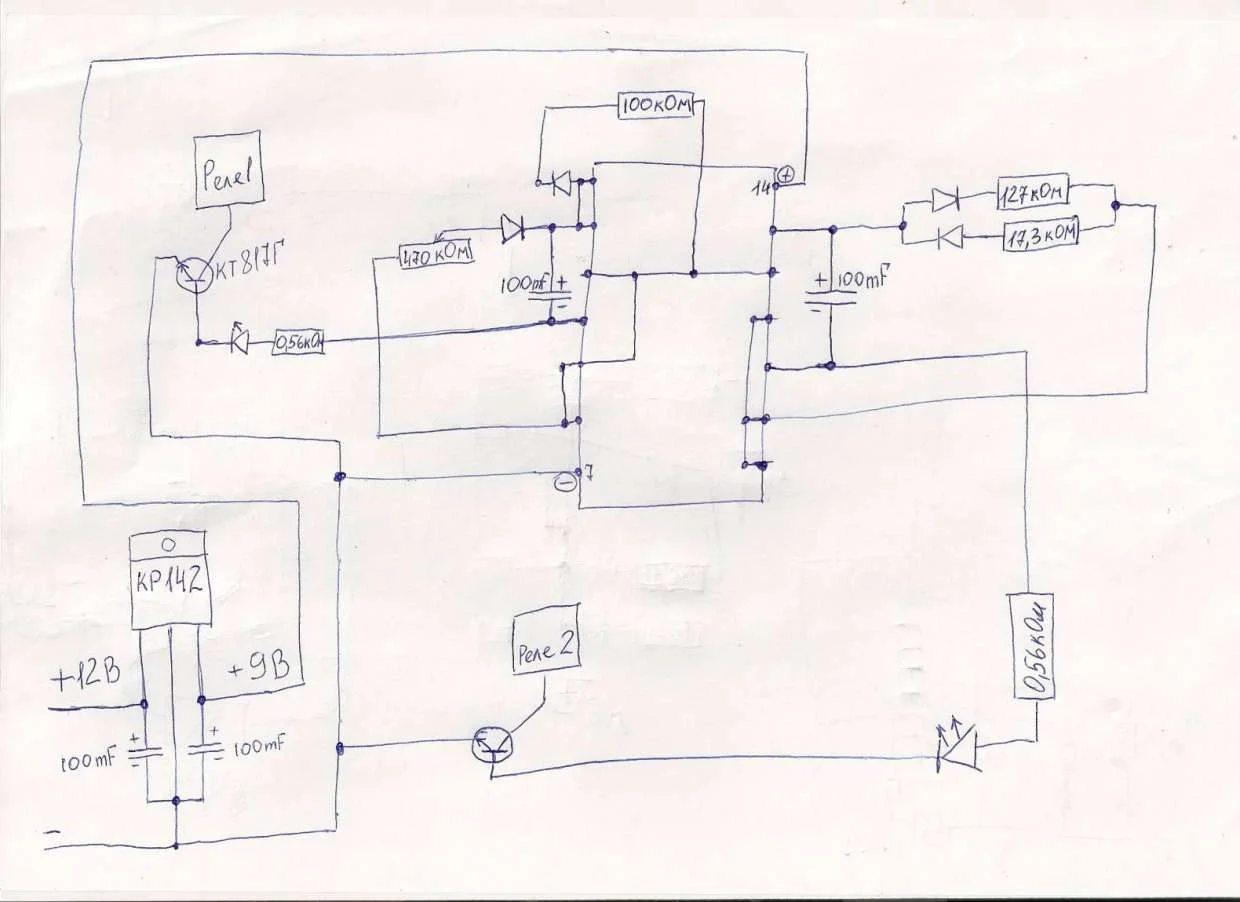 100кОм
Реле1
14
+
127кОм
17,3кОм
КТ817Г
470кОм
100mF
+
-
+
100mF
-
0,56кОм
7
-
КР142
Реле 2
0,56кОм
+12В
+9В
+
100mF
-
+
100mF
-
-